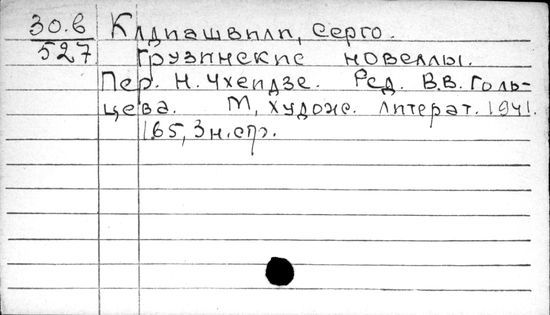 30.6 Клдиашвили, Серго.
527 Грузинские новеллы.
Пер. Н. Чхеидзе. Ред. В.В. Голь-
цева. М, худож. литерат. 1941.
165, 3 н. стр.